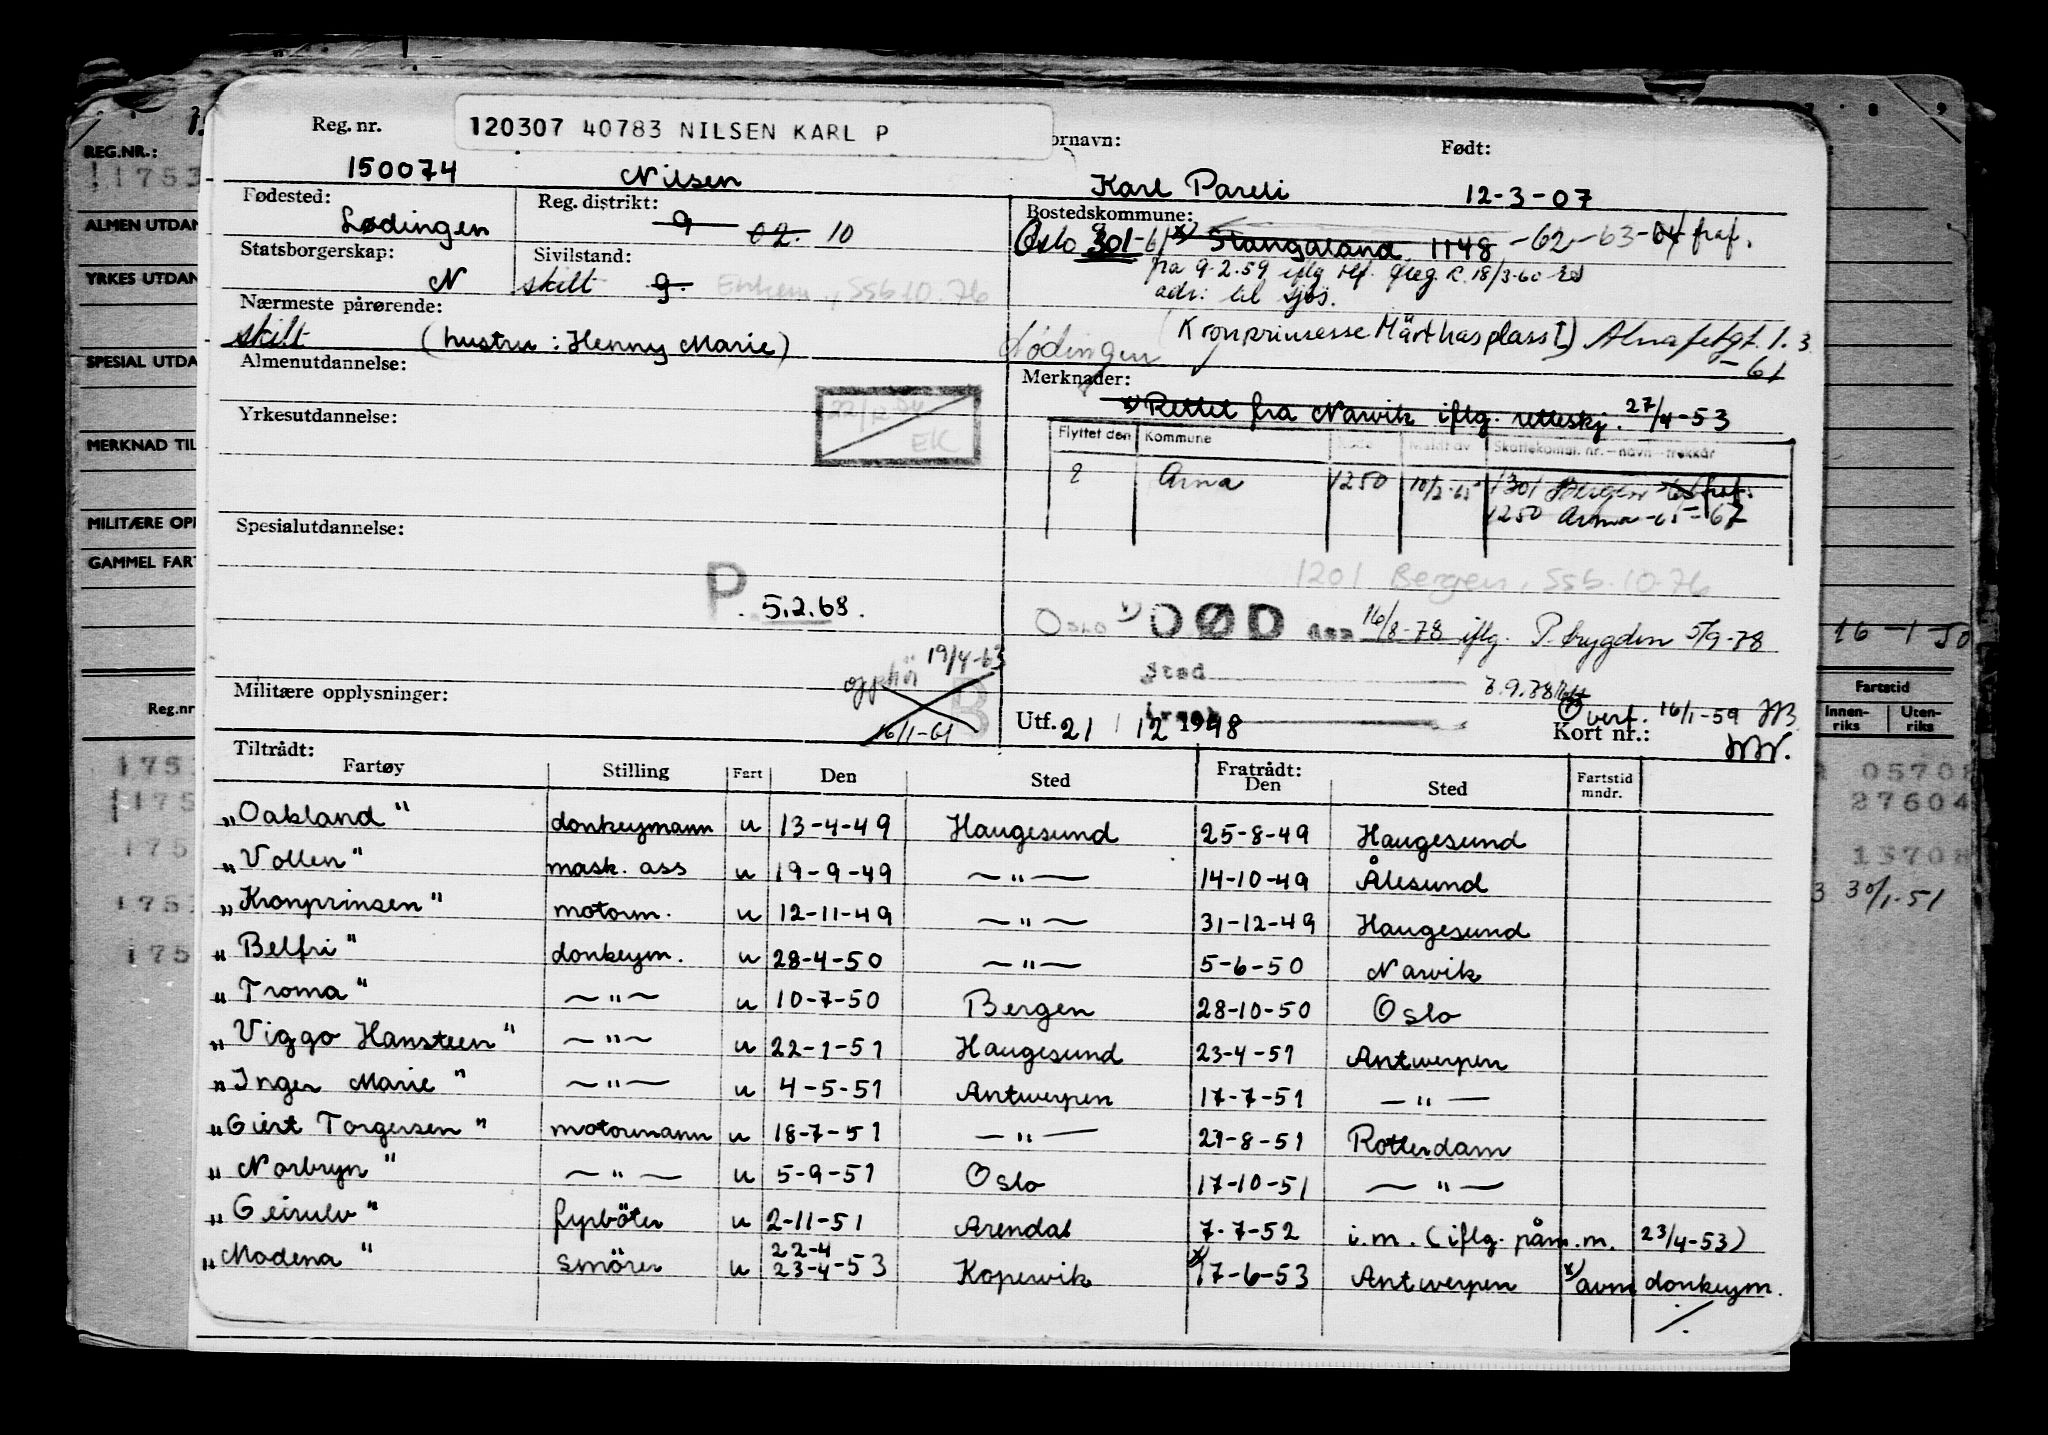 Reg. nr.
120307 40783 NILSEN KARL P
ornavn:
Født:
150074 Nilsen Karl Pareli 12-3-07
Fødested: Lødingen
Reg. distrikt: 9 02. 10
Bostedskommune:
Oslo 301-61 Stangaland 1148 -62-63-64 fraf.
Statsborgerskap: N
Sivilstand: skilt g. Enkem., SSb 10.76
fra 9-2.59 iflg
adr: til sjøs.
Nærmeste pårørende:
skilt (hustru: Henny Marie)
(Kronprinsesse Märthasplass 1) Alnafetgt. 1. 3
-61
Lødingen
Almenutdannelse:
Merknader:
x) Rettet fra Narvik iflg. retteskj. 27/4-53
EK
Yrkesutdannelse:
Flyttet den Kommune Meldt av Skattekomm. nr. – navn – trekkår
? Arna 1250 10/2-65 1301 Bergen fraf.
1250 Arna -65-67
Spesialutdannelse:
1201 Bergen, SSb. 10-76
P. 5.2.68.
OSLO DØD den 16/8-78 iflg. P. trygden 5/9-78
Sted
7.9.78
opphør 19/4-63
B
16/1-61
Militære opplysninger:
Utf. 21 / 12 1948
Overf. 16/1-59
Kort nr.:
Tiltrådt:
Fartøy Stilling Fart Den Sted Fratrådt: Den Sted Fartstid mndr.
„Oakland" donkeymann u 13-4-49 Haugesund 25-8-49 Haugesund
„Vollen" mask. ass u 19-9-49 —"— 14-10-49 Ålesund
„Kronprinsen" motorm. u 12-11-49 —"— 31-12-49 Haugesund
„Belfri" donkeym. u 28-4-50 —"— 5-6-50 Narvik
„Troma" —"— u 10-7-50 Bergen 28-10-50 Oslo
„Viggo Hansteen" —"— u 22-1-51 Haugesund 23-4-51 Antwerpen
„Inger Marie" —"— u 4-5-51 Antwerpen 17-7-51 —"—
„Giert Torgersen" motormann u 18-7-51 —"— 27-8-51 Rotterdam
„Norbryn" —"— u 5-9-51 Oslo 17-10-51 —"—
„Geirulv" fyrbøter u 2-11-51 Arendal 7-7-52 i.m. (iflg. påm.m. 23/4-53)
22-4
„Modena" smörer u 23-4-53 Kopervik x) 17-6-53 Antwerpen x) avm donkeym.
./.
REG.NR.:
1753
ALMEN UTDAN
YRKES UTDAN
SPESIAL UTDA
MERKNAD TIL
MILITÆRE OPP
GAMMEL FART
Reg.nr
1753
175
175
175
175
7 8 9
16-1-50
Fartstid
Innen-riks Uten-riks
05708
27604
13708
30/1-51